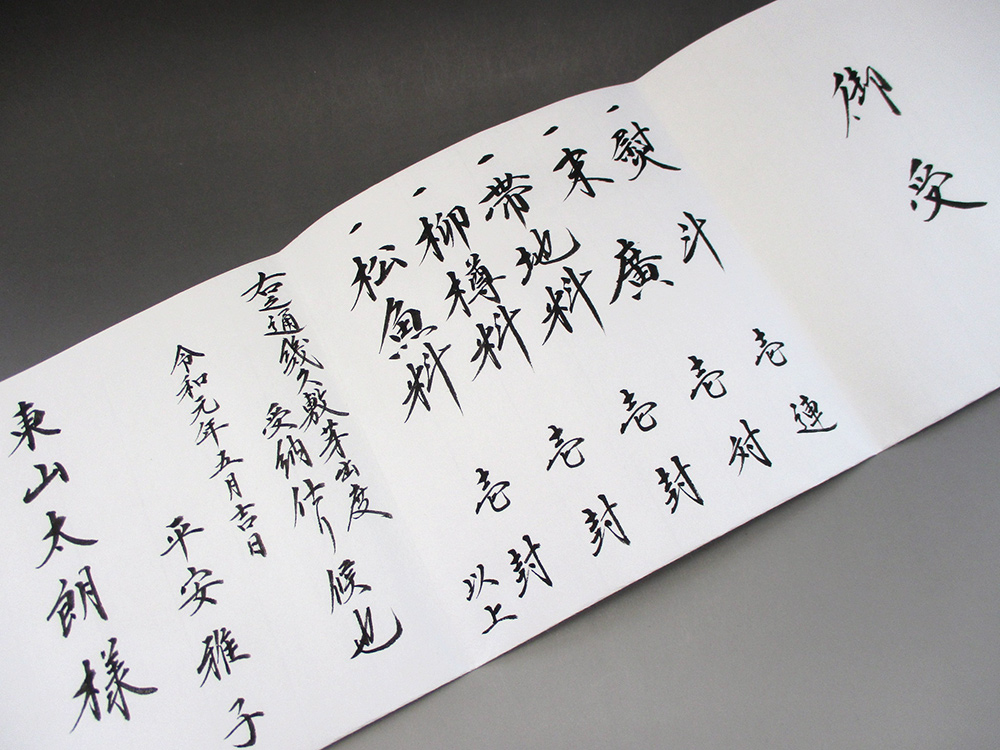 御受
一 熨斗 壱連
一 末廣 壱対
一 帯地料 壱封
一 柳樽料 壱封
一 松魚料 壱封
以上
右之通幾久敷芽出度
受納仕り候也
令和元年五月吉日
平安雅子
東山太朗様